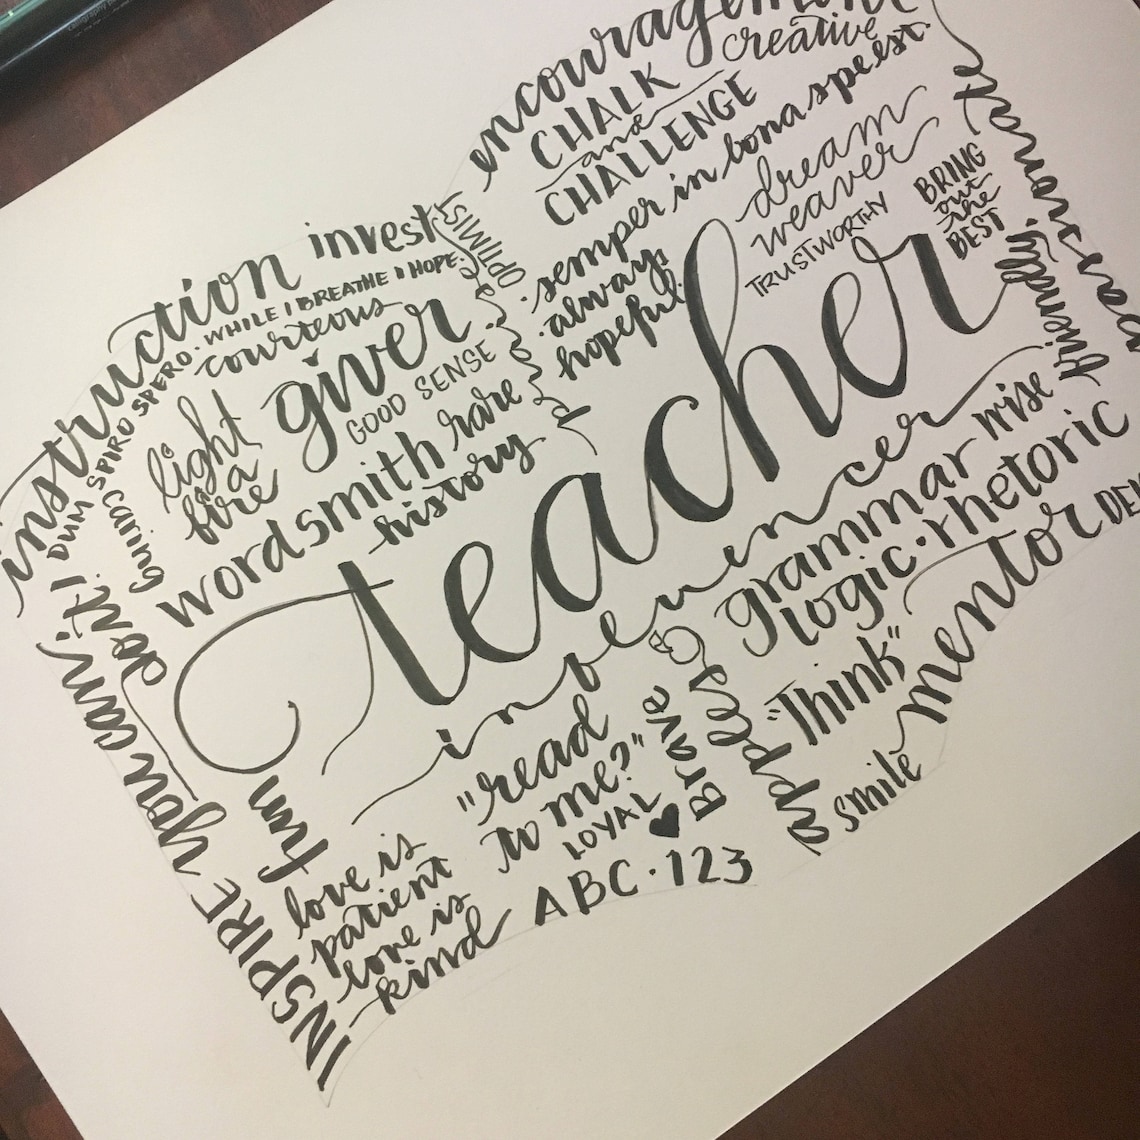 encouragement
creative
CHALK
and
CHALLENGE
semper in bona spe est.
always
hopeful.
dream
weaver
TRUSTWORTHY
BRING
out
the
BEST
friendly
instruction
invest
OPTIMIST
DUM SPIRO SPERO. WHILE I BREATHE I HOPE.
courteous
giver
GOOD SENSE
light
a
fire
caring
wordsmith
rare
history
teacher
influencer
you can!
do it!
INSPIRE
fun
love is
patient
love is
kind
"read
to me?"
LOYAL
Brave
ABC · 123
apples
grammar
logic · rhetoric
wise
"Think"
mentor
smile